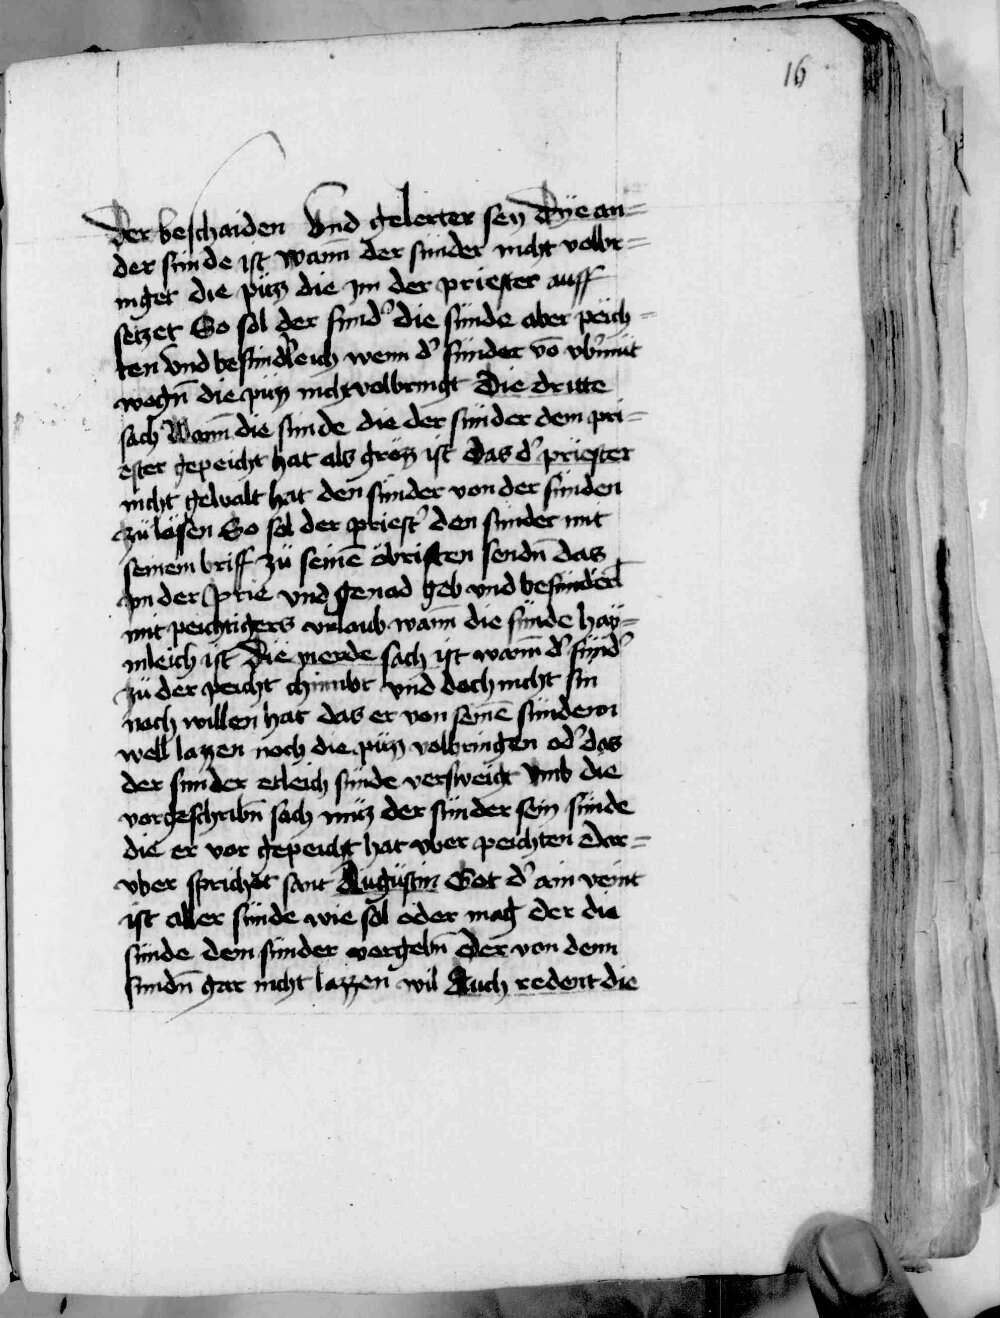 16
Der beschaiden Vnd gelerter sey Dÿe an=
der sünde ist Wann̄ der sunder nicht volbr=
inget die püzz die jm der priester auff
setzet So sol der sund' die sünde aber peich=
ten vnd besünd'leich wenn d' sünder vō vb'müt
wegn̄ die püzz nicht volbringt Die dritte
sach Wann̄ die sünde die der sünder dem pri=
ester gepeicht hat als grözz ist Das d' priester
nicht gewalt hat den sünder von der sünden
zü lösen So sol der priest' den sünder mit
seinem briff zü seinē öbristen sendn̄ das
jn der vnd genad geb vnd besünderl̄
mit peichtigers vrlaub wann̄ die sünde hay=
mleich ist Die vierde sach ist wann̄ d' sünd'
zü der peicht chumbt vnd doch nicht sin
noch willen hat das er von seinē sünden
well lazzen noch die püzz volbringen od' das
der sunder etleich sünde versweigt Vmb die
vorgeschribn̄ sach müz der sünder sein sünde
die er vor gepeicht hat vber peichten Dar=
vber sprichet sant Augüstin Got d' ain veint
ist aller sünde wie sol oder mag der die
sünde dem sunder vergebn̄ Der von denn
sündn̄ gar nicht lazzen wil Auch redent die